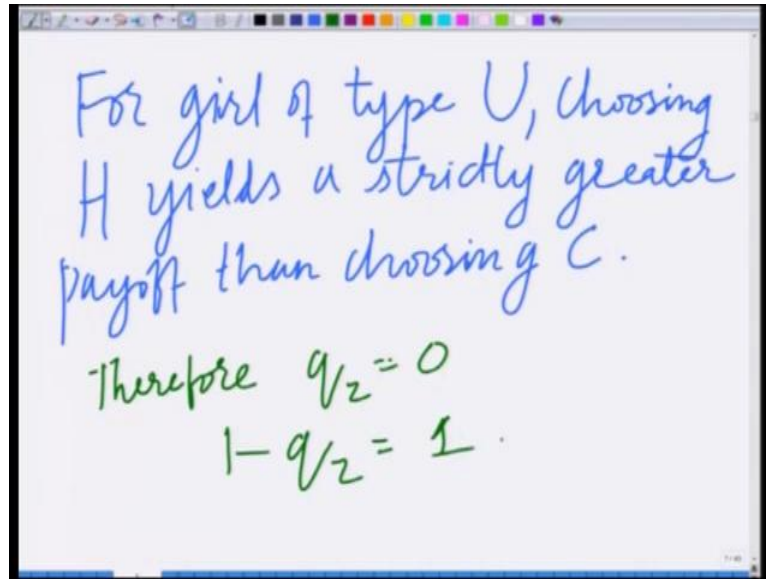 For girl of type U, choosing
H yields a strictly greater
payoff than choosing C.
Therefore q₂ = 0
1 - q₂ = 1.